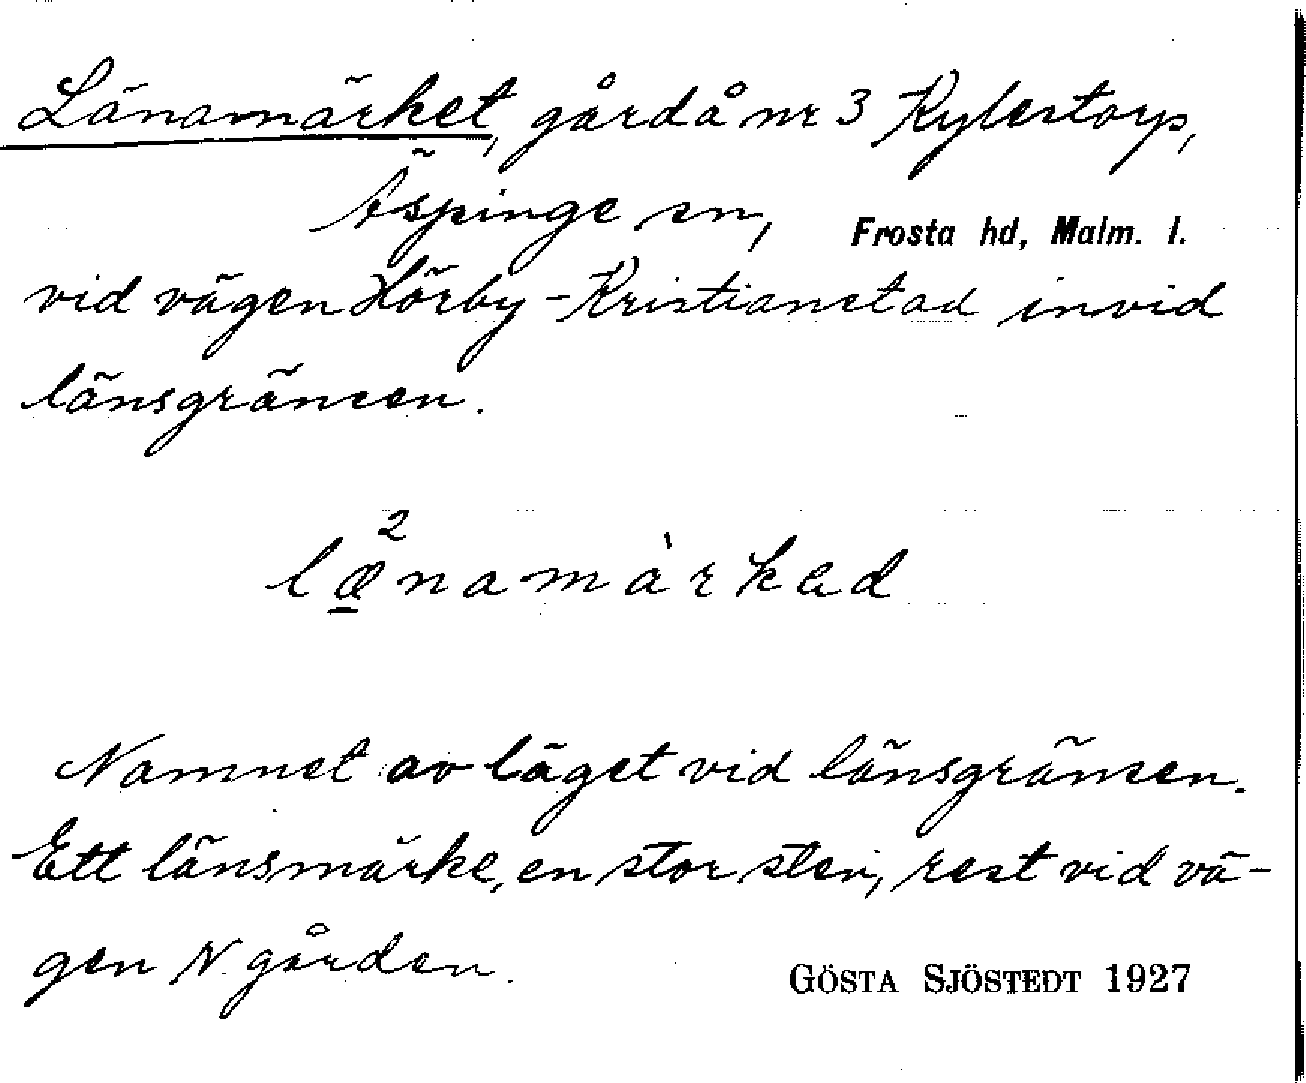 Länamärket, gård å nr 3 Kylestorp,
Äspinge sn, Frosta hd, Malm. l.
vid vägen Hörby-Kristianstad invid
länsgränsen.
lænamàrkad
Namnet av läget vid länsgränsen.
Ett länsmärke, en stor sten, rest vid vä-
gen N. gården.
GÖSTA SJÖSTEDT 1927